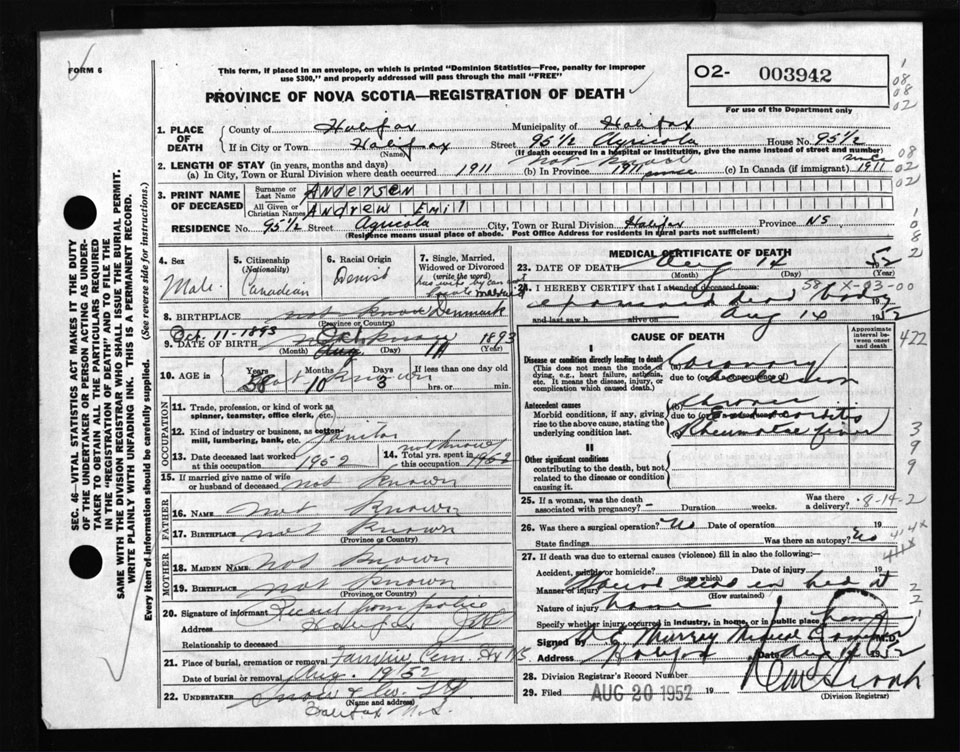 FORM 6
This form, if placed in an envelope, on which is printed "Dominion Statistics—Free, penalty for improper
use $300," and properly addressed will pass through the mail "FREE"
PROVINCE OF NOVA SCOTIA—REGISTRATION OF DEATH
O2- 003942
For use of the Department only
1. PLACE OF DEATH
County of Halifax Municipality of Halifax
If in City or Town Halifax (Name) Street 95 1/2 House No. 95 1/2
(If death occurred in a hospital or institution, give name instead of street and number)
2. LENGTH OF STAY (in years, months and days)
(a) In City, Town or Rural Division where death occurred 1911 (b) In Province 1911 since (c) In Canada (if immigrant) since 1911
3. PRINT NAME OF DECEASED
Surname or Last Name ANDERSEN
All Given or Christian Names ANDREW Emil
RESIDENCE No. 95 1/2 Street Agricola City, Town or Rural Division Halifax Province NS
(Residence means usual place of abode. Post Office Address for residents in rural parts not sufficient)
4. Sex
Male
5. Citizenship (Nationality)
Canadian
6. Racial Origin
Danish
7. Single, Married, Widowed or Divorced (write the word)
8. BIRTHPLACE not known Denmark
(Province or Country)
Oct. 11-1893
9. DATE OF BIRTH Aug 11 1893
(Month) (Day) (Year)
10. AGE in Years Months Days If less than one day old
58 10 3 not known hrs. or min.
OCCUPATION
11. Trade, profession, or kind of work as spinner, teamster, office clerk, etc.
12. Kind of industry or business, as cotton-mill, lumbering, bank, etc. Janitor
13. Date deceased last worked at this occupation 1952
14. Total yrs. spent in this occupation not known 1952
15. If married give name of wife or husband of deceased not known
FATHER
16. Name not known
17. Birthplace not known
(Province or Country)
MOTHER
18. Maiden Name not known
19. Birthplace not known
(Province or Country)
20. Signature of informant Record from police
Address Halifax
Relationship to deceased
21. Place of burial, cremation or removal Fairview Cem. Hx NS
Date of burial or removal Aug. 1952
22. Undertaker Snow & Co.
(Name and address)
Halifax N.S.
MEDICAL CERTIFICATE OF DEATH
23. DATE OF DEATH Aug 14 52
(Month) (Day) (Year)
24. I HEREBY CERTIFY that I attended deceased from:
examined dead body 19
and last saw h alive on Aug 14 1952
58 X-93-00
CAUSE OF DEATH
Approximate interval between onset and death
I
Disease or condition directly leading to death
(This does not mean the mode of dying, e.g., heart failure, asthenia, etc. It means the disease, injury, or complication which caused death.)
(a) Coronary
due to
Antecedent causes
Morbid conditions, if any, giving rise to the above cause, stating the underlying condition last.
(b) Chronic
Endocarditis
due to (c) Rheumatic fever
II
Other significant conditions
contributing to the death, but not related to the disease or condition causing it.
25. If a woman, was the death associated with pregnancy? - Duration weeks. Was there a delivery?
8-14-2
26. Was there a surgical operation? No Date of operation 19
State findings Was there an autopsy? No
27. If death was due to external causes (violence) fill in also the following:—
Accident, suicide or homicide? (State which) Date of injury 19
Manner of injury Found dead in bed at
(How sustained)
Nature of injury home
Specify whether injury occurred in industry, in home, or in public place home
Signed by Murray Medical Examiner M.D.
Address Halifax Date 1952
28. Division Registrar's Record Number
29. Filed AUG 20 1952 19
(Division Registrar)
SEC. 46—VITAL STATISTICS ACT MAKES IT THE DUTY
OF THE UNDERTAKER OR PERSON ACTING AS UNDER-
TAKER TO OBTAIN ALL THE PARTICULARS REQUIRED
IN THE "REGISTRATION OF DEATH" AND TO FILE THE
SAME WITH THE DIVISION REGISTRAR WHO SHALL ISSUE THE BURIAL PERMIT.
WRITE PLAINLY WITH UNFADING INK. THIS IS A PERMANENT RECORD.
Every item of information should be carefully supplied. (See reverse side for instructions.)
1
08
08
02
08
02
02
1
0
8
2
422
3
9
9
4x
411x
2
2
1